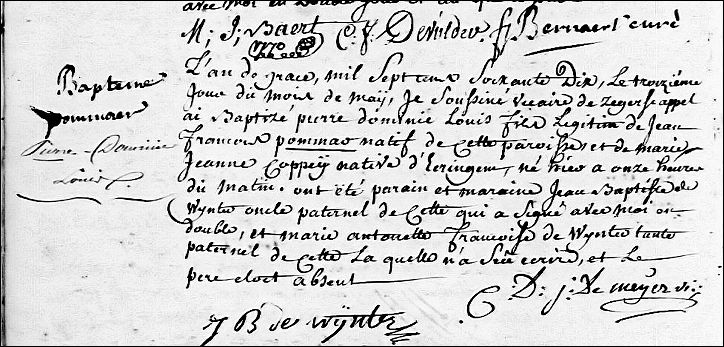 avec moi en double
M: J: Baert C. f. Dewilder f Bernaert curé
1770
Bapteme
pommaer
Pierre-Dominic
Louis
L'an de grace, mil sept cens soixante Dix, Le troizième
jour du mois de maÿ, je soussiné vicaire de Zegerscappel
ai Baptizé pierre dominic Louis fils Legitim de Jean
Francois pommaer natif de Cette paroisse et de marie
Jeanne Coppeÿ native d'Eringem, né hier a onze heures
du matin. ont été parain et maraine Jean Baptiste de
Wÿnte oncle paternel de Cette qui a signé avec moi en
double, et marie antonette Francoise de Wÿnte tante
paternel de Cette La quelle n'a sçeu ecrire, et Le
pere eloct absent
C: D: j: De meÿer vic:
J B de wÿnter